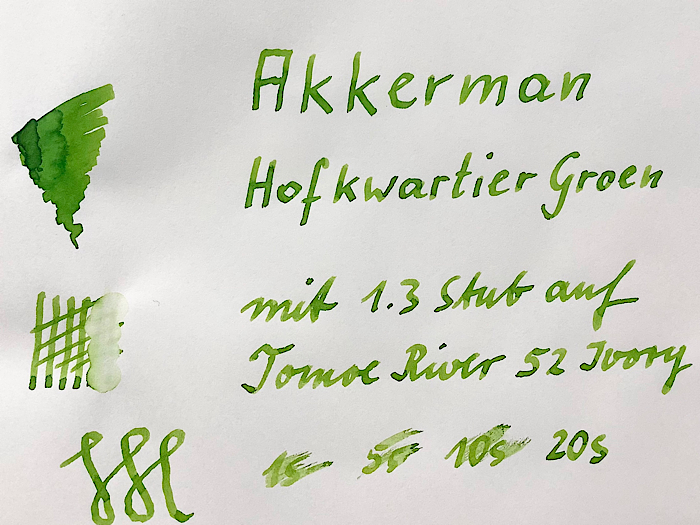 Akkerman
Hofkwartier Groen
mit 1.3 Stub auf
Tomoe River 52 Ivory
1s 5s 10s 20s